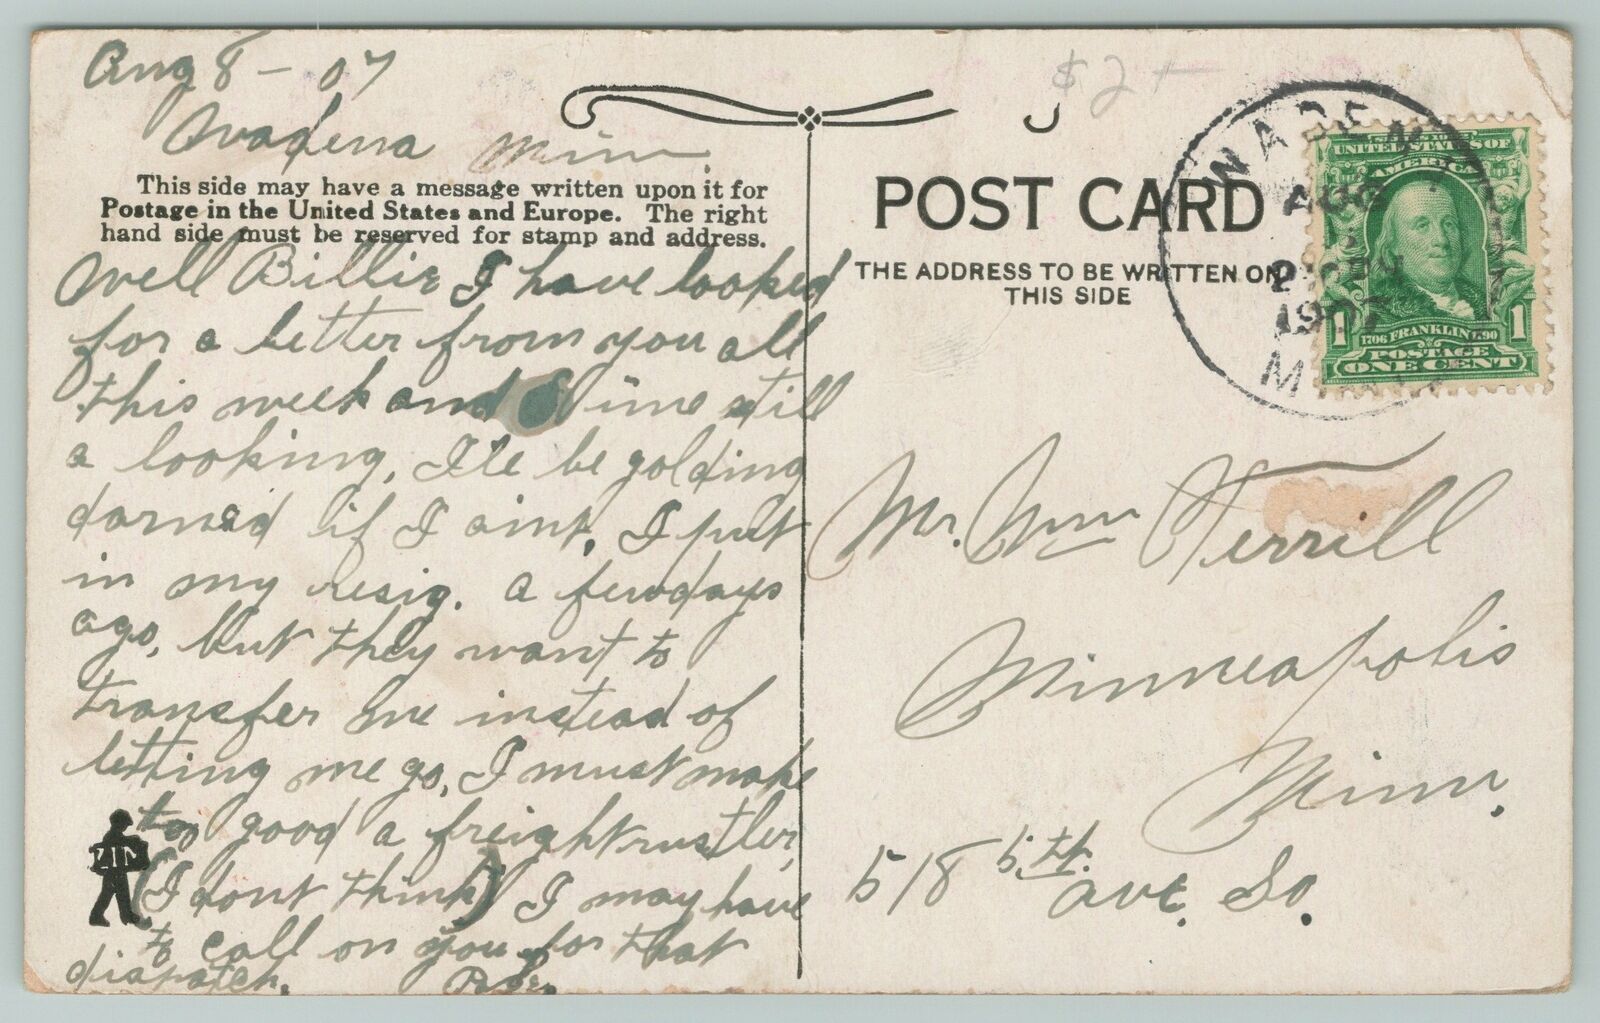 Aug 8 - 07
Wadena Minn.
This side may have a message written upon it for
Postage in the United States and Europe. The right
hand side must be reserved for stamp and address.
Well Billie I have looked
for a letter from you all
this week and ime still
a looking, I'le be golding
darned if I aint, I put
in my resig. a few days
ago, but they want to
transfer me instead of
letting me go, I must make
too good a freight rustler,
(I dont think) I may have
to call on you for that
dispatch.
$2
POST CARD
THE ADDRESS TO BE WRITTEN ON
THIS SIDE
WADENA
AUG
8
1907
UNITED STATES OF
AMERICA
1 1706 FRANKLIN 1790 1
POSTAGE
ONE CENT
Mr. Wm Terrill
Minneapolis
Minn.
518 5th. Ave. So.
ZIM